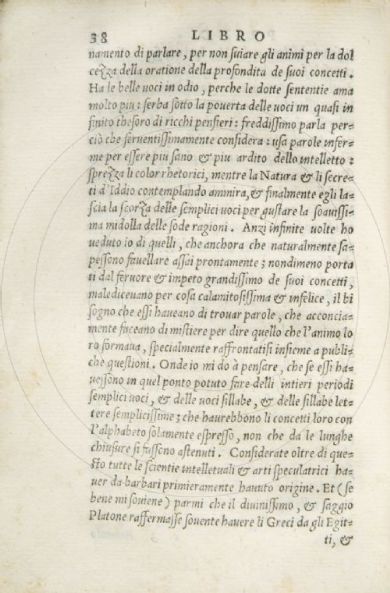 38 LIBRO
namento di parlare, per non suiare gli animi per la dol
cezza della oratione della profondita de suoi concetti.
Ha le belle uoci in odio, perche le dotte sententie ama
molto piu: serba sotto la pouerta delle uoci un quasi in
finito thesoro di ricchi pensieri: freddissimo parla per-
ciò che feruentissimamente considera: usa parole infer-
me per essere piu sano & piu ardito dello intelletto:
sprezza li color rhetorici, mentre la Natura & li secre-
ti d'Iddio contemplando ammira, & finalmente egli la-
scia la scorza delle semplici uoci per gustare la soauissi-
ma midolla delle sode ragioni. Anzi infinite uolte ho
ueduto io di quelli, che anchora che naturalmente sa-
pessono fauellare assai prontamente; nondimeno porta
ti dal feruore & impeto grandissimo de suoi concetti,
malediceuano per cosa calamitosissima & infelice, il bi
sogno che essi haueano di trouar parole, che acconcia-
mente faceano di mistiere per dire quello che l'animo lo
ro formaua, specialmente raffrontatisi insieme a publi-
che questioni. Onde io mi do à pensare, che se essi ha-
uessono in quel ponto potuto fare delli intieri periodi
semplici uoci, & delle uoci sillabe, & delle sillabe let-
tere semplicissime; che haurebbono li concetti loro con
l'alphabeto solamente espresso, non che da le lunghe
chiusure si fussono astenuti. Considerate oltre di que-
sto tutte le scientie intelletuali & arti speculatrici ha-
uer da barbari primieramente hauuto origine. Et (se
bene mi souiene) parmi che il diuinissimo, & saggio
Platone raffermasse souente hauere li Greci da gli Egit-
ti, &